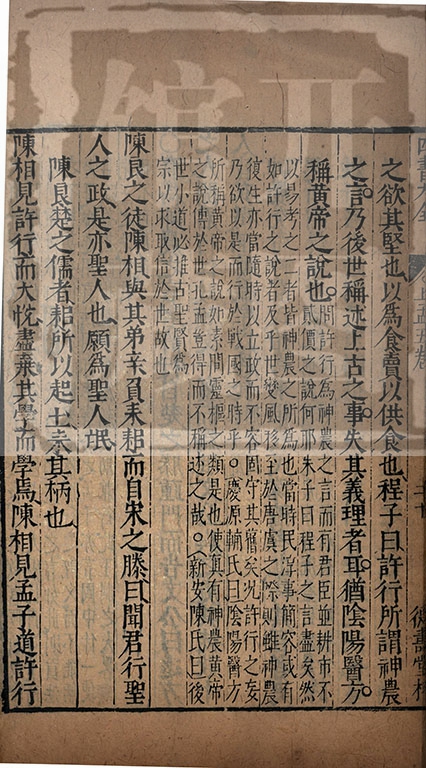 上孟五卷
之欲其堅也以爲食賣以供食也程子曰許行所謂神農
之言乃後世稱述上古之事失其義理者耳猶陰陽醫方
稱黃帝之說也問許行爲神農之言而有君臣並耕市不
貳價之說何耶朱子曰程子之言盡矣然
以易考之二者皆神農之所爲也當時民淳事簡容或有
如許行之說者及乎世變風移至於唐虞之際則雖神農
復生亦當隨時以立政而不容固守其舊矣況許行之妄
乃欲以是而行於戰國之時乎○慶源輔氏曰陰陽醫方
所稱黃帝之說如素問靈樞之類是也使眞有神農黃帝
之說傳於世孔孟豈得而不稱述之哉○新安陳氏曰後
世小道必推古聖賢爲
宗以求取信於世故也
陳良之徒陳相與其弟辛負耒耜而自宋之滕曰聞君行聖
人之政是亦聖人也願爲聖人氓
陳良楚之儒者耜所以起土耒其柄也
陳相見許行而大悅盡棄其學而學焉陳相見孟子道許行